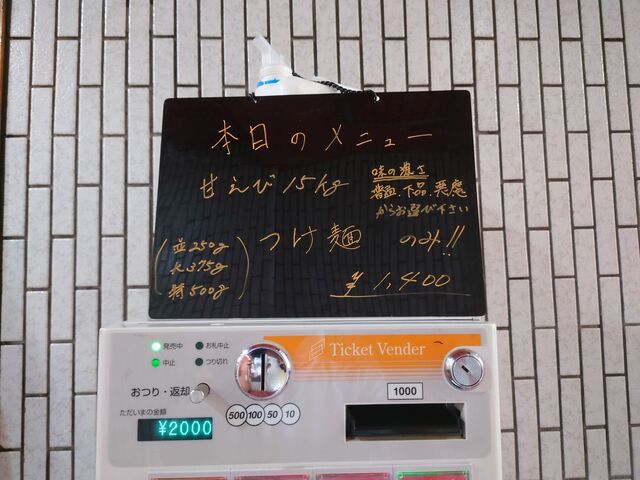 本日のメニュー
甘えび15kg
味の濃さ
普通、下品、悪魔
からお選び下さい
つけ麺 のみ!!
並250g
大375g
特500g
¥1,400
Ticket Vender
発売中
お札中止
中止
つり切れ
おつり・返却
1000
ただいまの金額
¥2000
500 100 50 10